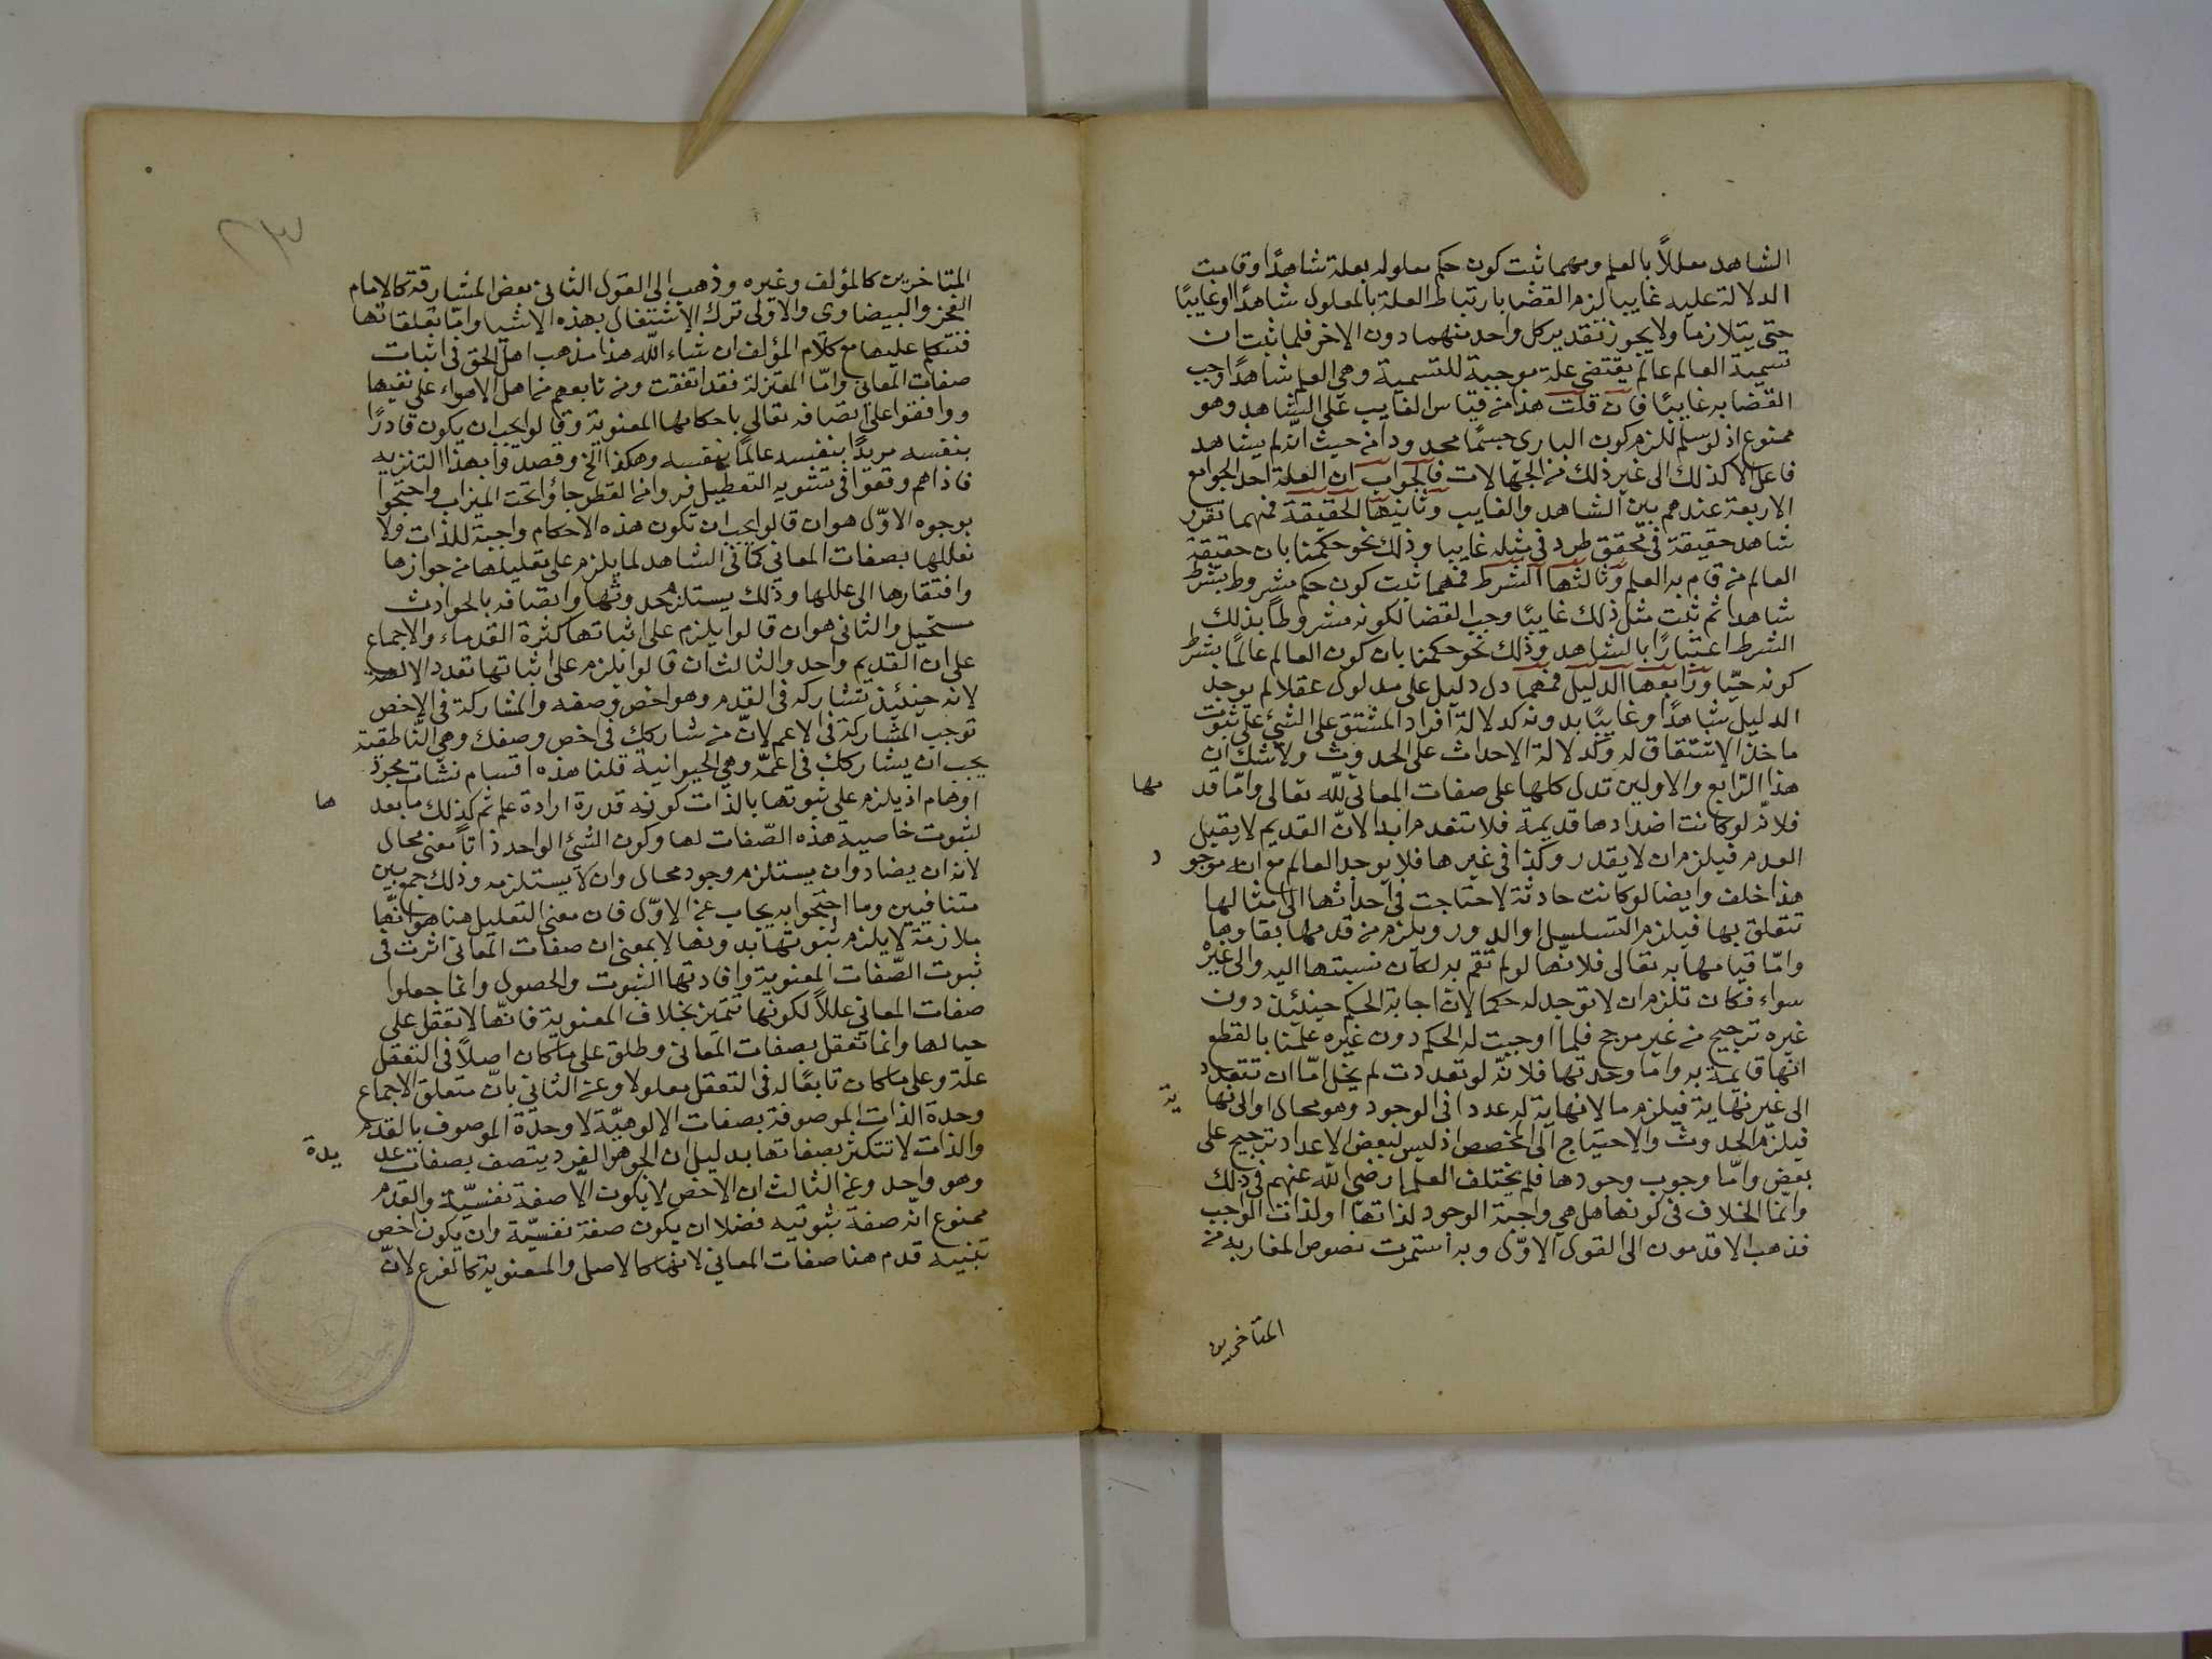 الشاهد معللاً بالعلم ومهما ثبت كون حكم معلوله بعلة شاهدًا وقامت
الدلالة عليه غايبا لزم القضا بارتباط العلة بالمعلول شاهدًا او غايبًا
حتى يتلازما ولا يجوز تقدير كل واحد منهما دون الاخر فلما ثبت ان
تسمية العالم عالم يقتضي علة موجبة للتسمية وهي العلم شاهدًا وجب
القضا به غايبًا فان قلت هذا من قياس الغايب على الشاهد وهو
ممنوع اذ لو سلم للزم كون الباري جسمًا محدودا من حيث انه لم يشاهد
فاعل الا كذلك الى غير ذلك من الجهالات فالجواب ان العلة احد الجوامع
الاربعة عندهم بين الشاهد والغايب وثانيها الحقيقة فمهما تقرر
شاهد حقيقة في محقق طرد في مثله غايبا وذلك نحو حكمنا بان حقيقة
العالم من قام به العلم وثالثها الشرط فمهما ثبت كون حكم مشروط بشرط
شاهدا ثم ثبت مثل ذلك غايبًا وجب القضا لكونه مشروطًا بذلك
الشرط اعتبارًا بالشاهد وذلك نحو حكمنا بان كون العالم عالمًا بشرط
كونه حيّا ورابعها الدليل فمهما دل دليل على مدلول عقلا لم يوجد
الدليل شاهدًا وغايبًا بدونه كدلالة افراد المشتق على الشئ على ثبوت
ماخذ الاشتقاق له وكدلالة الاحداث على الحدوث ولا شك ان
هذا الرابع والاولين تدل كلها على صفات المعاني لله تعالى وامّا قد مها
فلانّه لو كانت اضدادها قديمة فلا تنعدم ابدا لانّ القديم لا يقبل
العدم فيلزم ان لا يقدر وكذا في غيرها فلا يوجد العالم مع انه موجو د
هذا خلف وايضا لو كانت حادثة لاحتاجت في احداثها الى امثالها
تتعلق بها فيلزم التسلسل او الدور ويلزم من قدمها بقاوها
وامّا قيامها به تعالى فلانّها لو لم تقم به لكان نسبتها اليه والى غيره
سواء فكان تلزم ان لا توجد له حكما لان اجابة الحكم حينئذ دون
غيره ترجيح من غير مرجح فلما اوجبت له الحكم دون غيره علمنا بالقطع
انها قايمة به واما وحدتها فلانّه لو تعددت لم يخل امّا ان تتعدد
الى غير نهاية فيلزم ما لا نهاية له عددا في الوجود وهو محال او الى نها ية
فيلزم الحدوث والاحتياج الى المخصص اذ ليس لبعض الاعداد ترجيح على
بعض وامّا وجوب وجودها فلم يختلف العلما رضي الله عنهم في ذلك
وانّما الخلاف في كونها هل هي واجبة الوجود لذاتها او لذات الواجب
فذهب الاقدمون الى القول الاوّل وبه استمرت نصوص المغاربة من
المتاخرين
٢٣
المتاخرين كالمؤلف وغيره وذهب الى القول الثاني بعض المشارقة كالامام
الفخر والبيضاوى والاولى ترك الاشتغال بهذه الاشيا وامّا تعلقاتها
فنتكلم عليها مع كلام المؤلف ان شاء الله هذا مذهب اهل الحق في اثبات
صفات المعاني وامّا المعتزلة فقد اتفقت ومن تابعهم من اهل الاهواء على نفيها
ووافقوا على اتصافه تعالى باحكامها المعنوية وقالوا يجب ان يكون قادرًا
بنفسه مريدًا بنفسه عالمًا بنفسه وهكذا الخ وقصدوا بهذا التنزيه
فاذاهم وقعوا في تشويه التعطيل فروا من القطر جاؤا تحت الميزاب واحتجوا
بوجوه الاوّل هو ان قالوا يجب ان تكون هذه الاحكام واجبة للذات ولا
نعللها بصفات المعاني كما في الشاهد لما يلزم على تعليلها من جوازها
وافتقارها الى عللها وذلك يستلزم حدوثها واتصافه بالحوادث
مستحيل والثاني هو ان قالوا يلزم على اثباتها كثرة القدماء والاجماع
على ان القديم واحد والثالث ان قالوا يلزم على اثباتها تعدد الالهة
لانه حينئذ تشاركه في القدم وهو اخص وصفه والمشاركة في الاخص
توجب المشاركة في الاعم لانّ من شاركك في اخص وصفك وهي الناطقية
يجب ان يشاركك في اعمّه وهي الحيوانية قلنا هذه اقسام نشات مجرد
اوهام اذ يلزم على ثبوتها بالذات كونه قدرة ارادة علم ثم كذلك ما بعد ها
لثبوت خاصية هذه الصّفات لها وكون الشئ الواحد ذاتًا معنى محال
لانه ان يضاد وان يستلزم وجود محال وان لا يستلزمه وذلك جمع بين
متنافيين وما احتجوا به يجاب عن الاوّل فان معنى التعليل هنا هو انّها
ملازمة لا يلزم ثبوتها بدونها لا بمعنى ان صفات المعاني اثرت في
ثبوت الصّفات المعنوية وافادتها الثبوت والحصول وانما جعلوا
صفات المعاني عللاً لكونها تتميز بخلاف المعنوية فانّها لا تعقل على
حيالها وانما تعقل بصفات المعانى وطلق على ما كان اصلاً في التعقل
علة وعلى ما كان تابعًا له في التعقل معلولا وعن الثاني بانّ متعلق الاجماع
وحدة الذات الموصوفة بصفات الالوهيّة لا وحدة الموصوف بالقدم
والذات لا تتكثر بصفاتها بدليل ان الجوهر الفرد يتصف بصفات عد يدة
وهو واحد وعن الثالث ان الاخص لا يكون الّا صفة نفسيّة والقدم
ممنوع انه صفة ثبوتيه فضلا ان يكون صفة نفسيّة وان يكون اخص
تنبيه قدم هنا صفات المعاني لانها كالاصل والمعنوية كالفرع لانّ